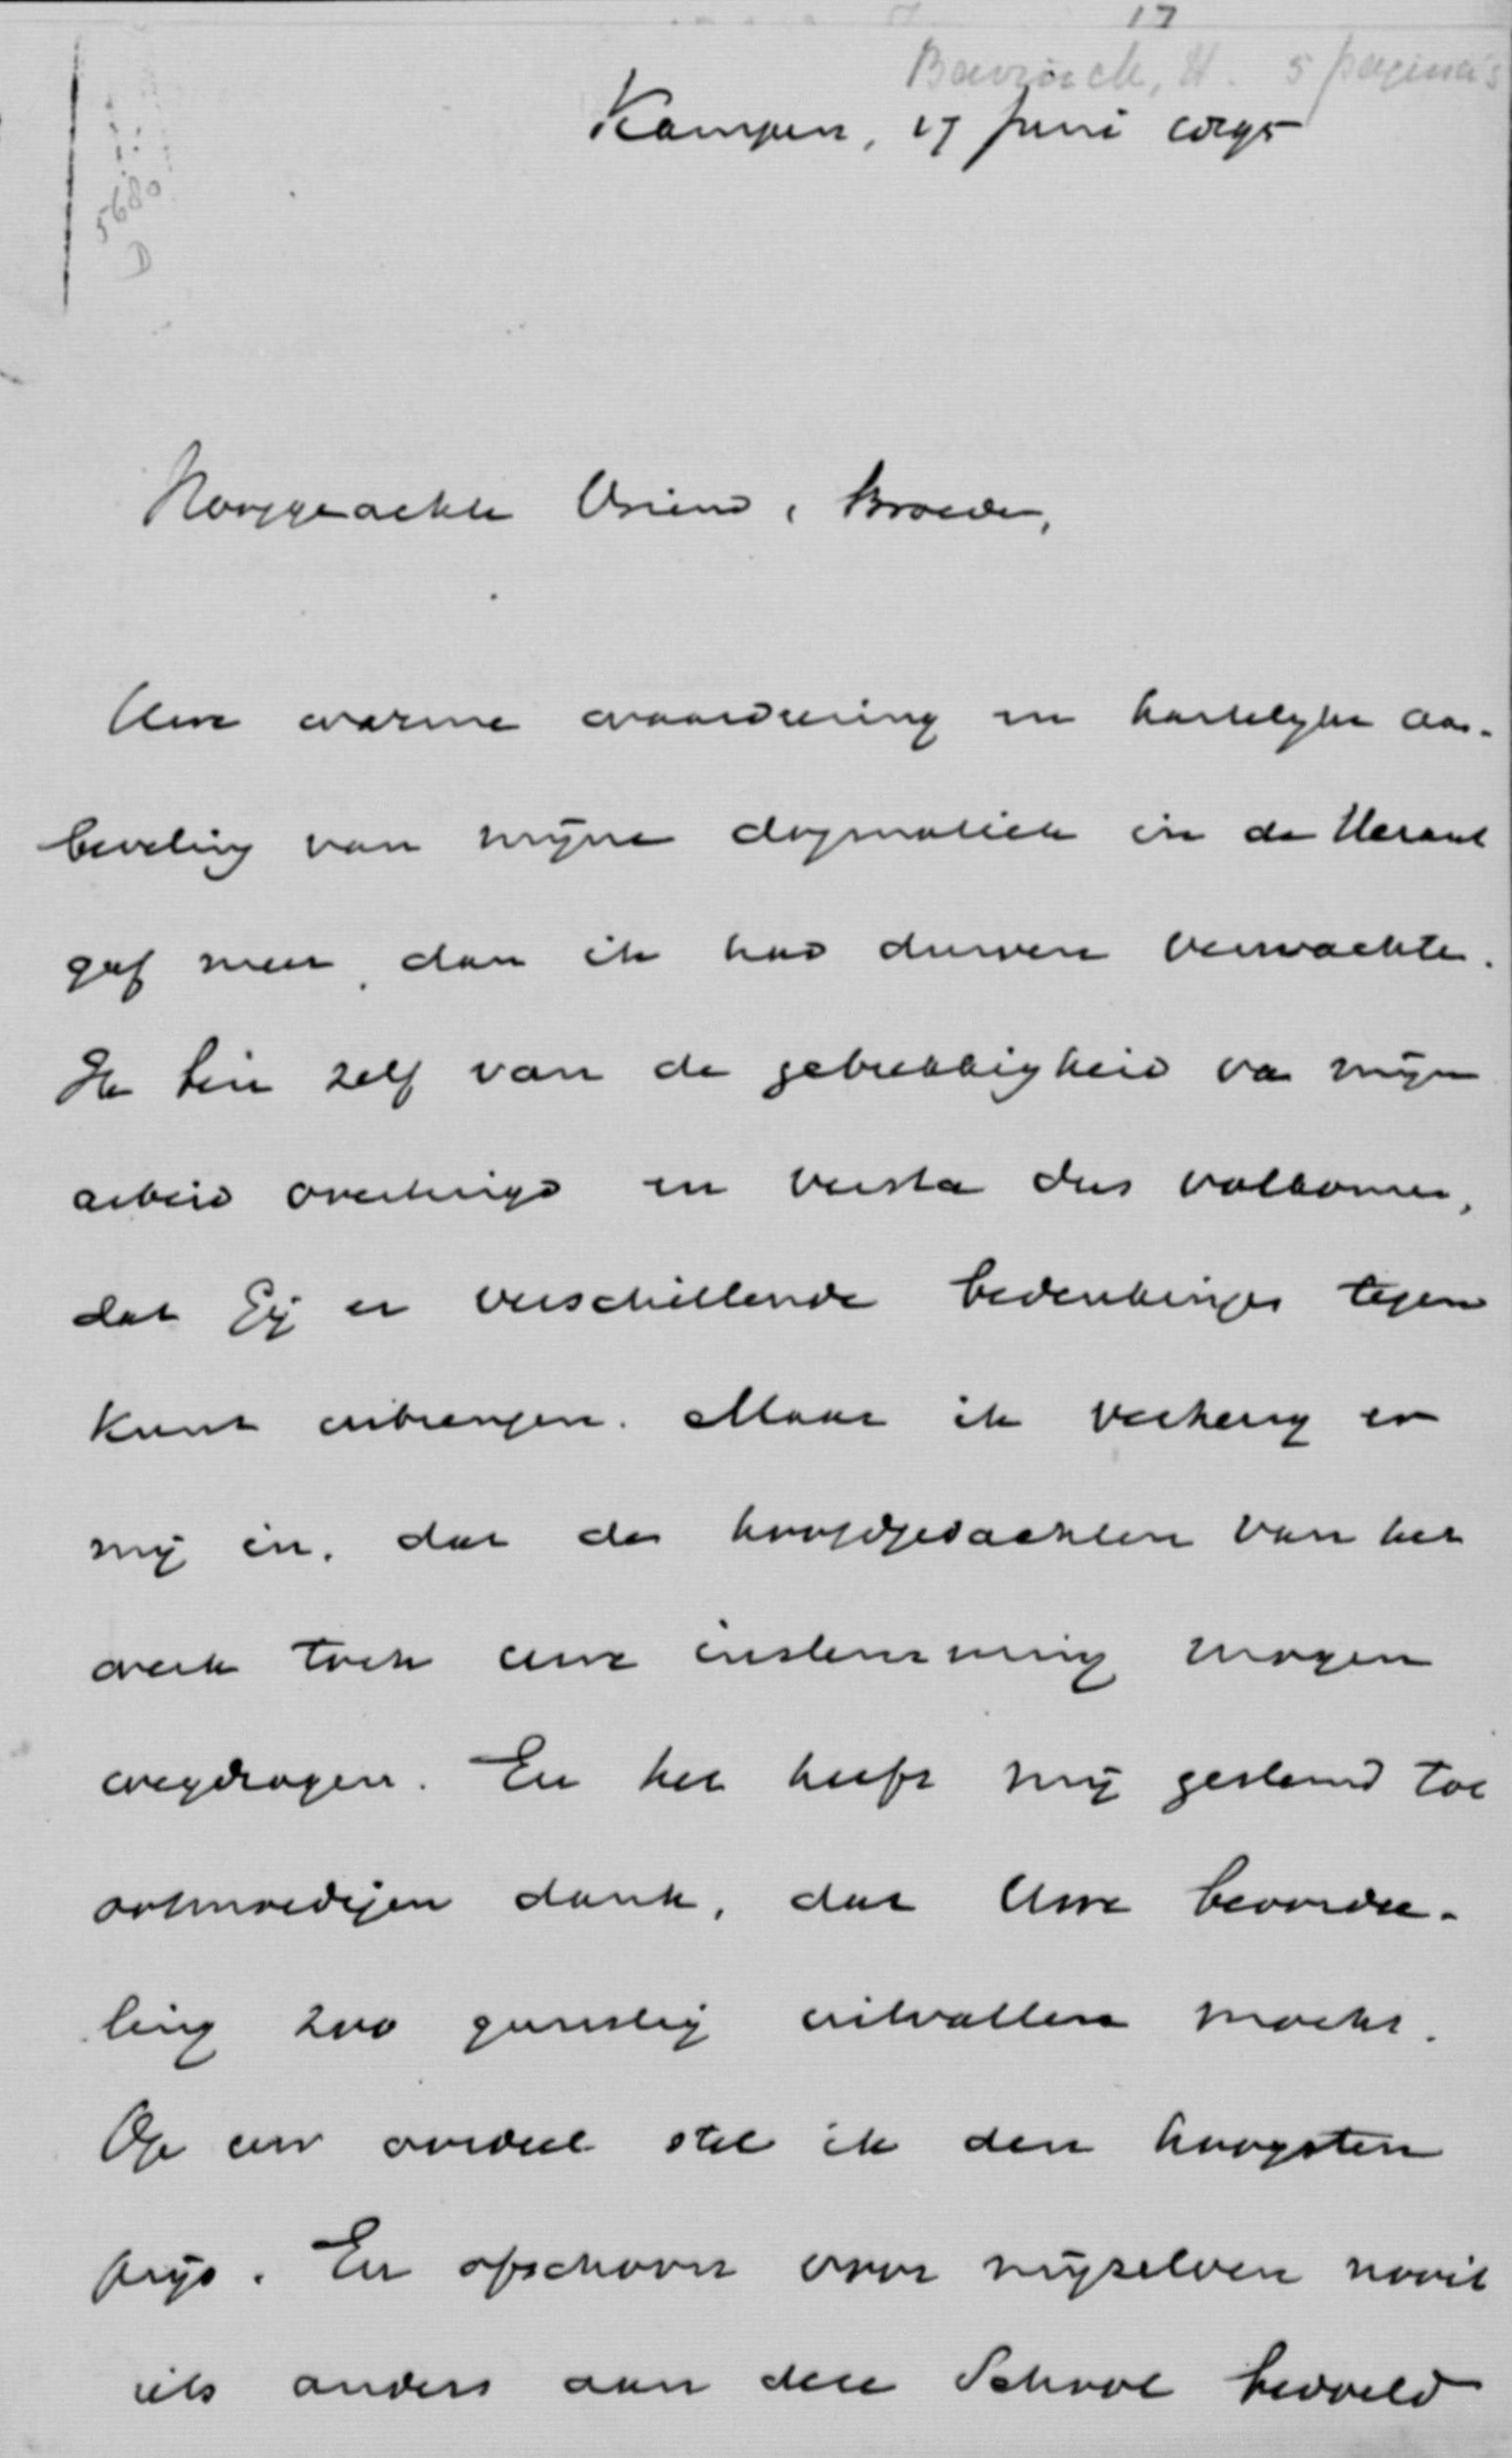 17
Bavinck, H. 5 pagina's
Kampen, 17 Juni 1895
5680
D
Hooggeachte Vriend & Broeder,
Uwe warme waardeering en hartelyke aan-
beveling van mijne dogmatiek in de Heraut
gaf meer, dan ik had durven verwachten.
Ik ben zelf van de gebrekkigheid van mijn
arbeid overtuigd en versta dus volkomen,
dat Gij er verschillende bedenkingen tegen
kunt inbrengen. Maar ik verheug er
mij in, dat de hoofdgedachten van het
werk toch uwe instemming mogen
wegdragen. En het heeft mij gestemd tot
ootmoedigen dank, dat Uwe beoordee-
ling zoo gunstig uitvallen mocht.
Op uw oordeel stel ik den hoogsten
prijs. En ofschoon voor mijzelven nooit
iets anders aan deze School bedoeld